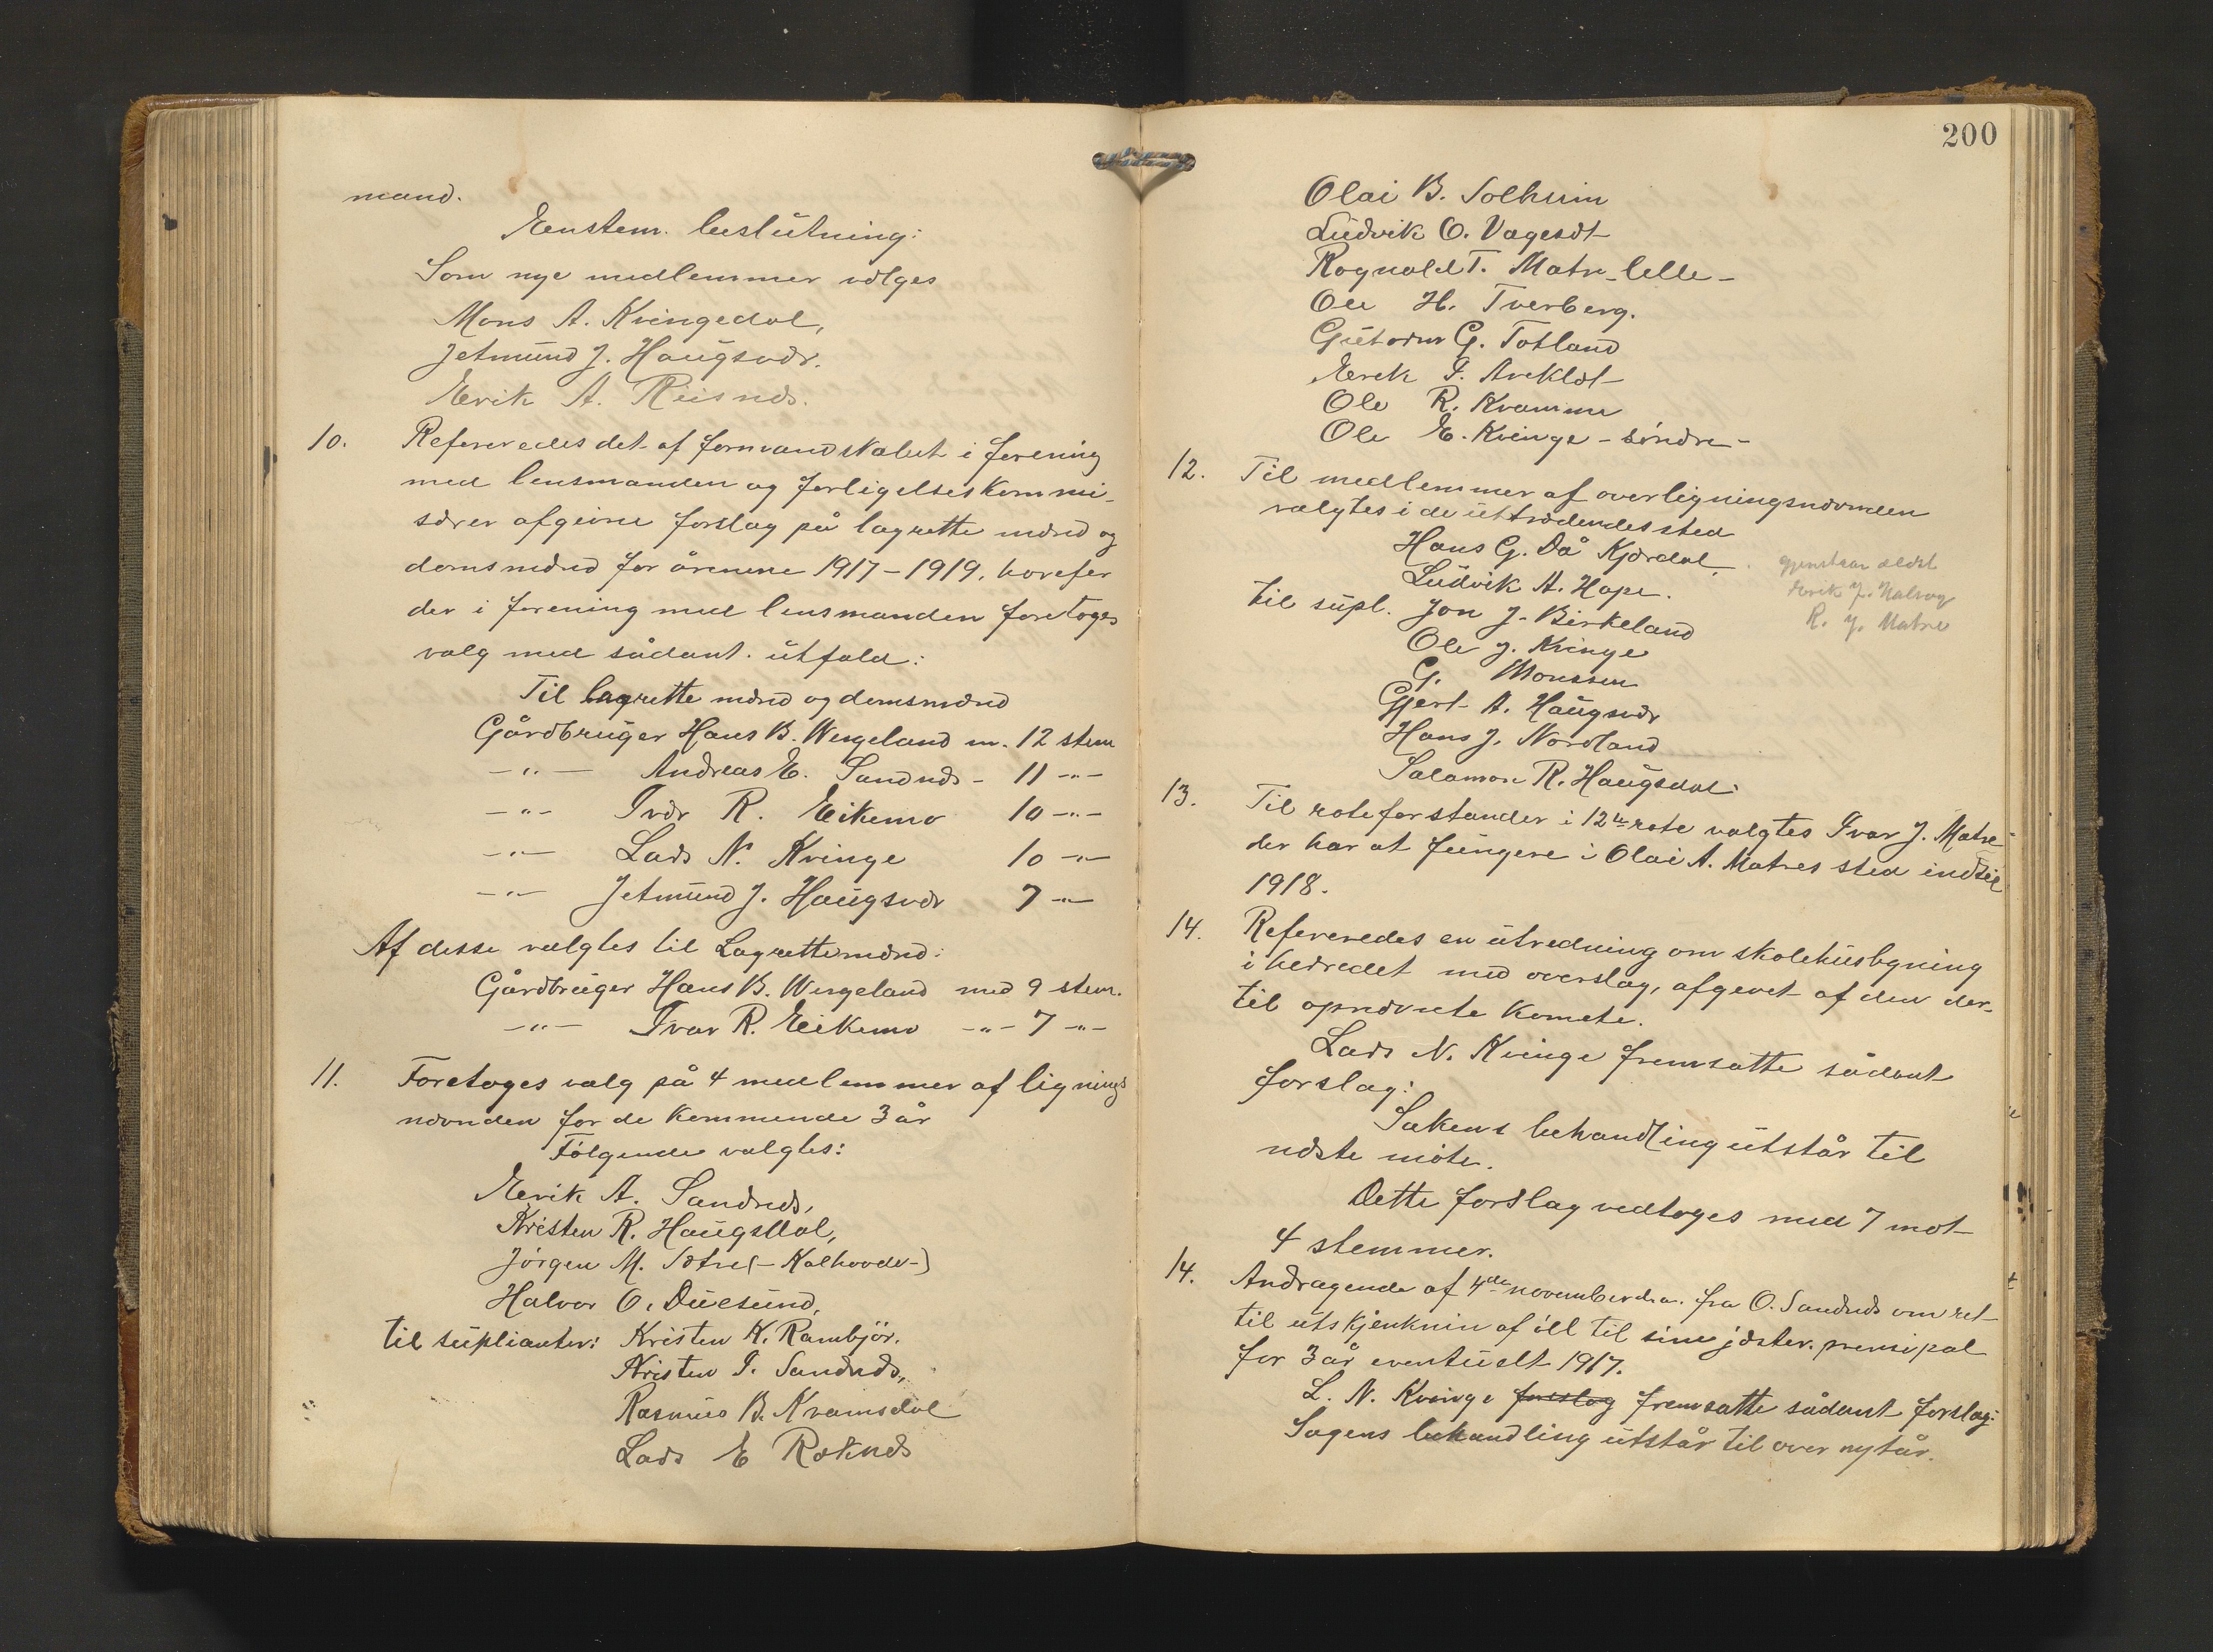 mand.
Enstem. beslutning:
Som nye medlemmer vælges
Mons A. Kvingedal,
Jetmund J. Haugsvær.
Erik A. Risnæs.
10. Refereredes det af formandskabet i forening
med lensmanden og forligelseskommi-
særer afgivne forslag på lagrette mænd og
domsmænd for årenene 1917-1919, hvorefer
der i forening med lensmanden foretoges
valg med sådant utfald:
Til lagrette mænd og domsmænd
Gårdbruger Hans B. Wergeland m. 12 stem
-"- Andreas E. Sandnæs - 11 -"-
-"- Ivar R. Eikemo 10 -"-
-"- Lars N. Kvinge 10 -"-
-"- Jetmund J. Haugsvær 7 -"-
Af disse valgtes til Lagrettemænd:
Gårdbruger Hans B. Wergeland med 9 stem.
-"- Ivar R. Eikemo -"- 7 -"-
11. Foretoges valg på 4 medlemmer af lignings
nævnden for de kommende 3 år
Følgende valgtes:
Erik A. Sandnæs,
Kristen R. Haugsdal,
Jørgen M. Sætre (- Kalhovde-)
Halvor O. Duesund,
til suplianter: Kristen K. Rambjør.
Kristen I. Sandnæs,
Rasmus B. Kvamsdal
Lars E Røknes
200
Olai B. Solheim
Ludvik O. Vågeset
Rognald T. Matre-lille-
Ole H. Tverberg.
Gutorm G. Totland
Erik P. Areklet
Ole R. Kvamme
Ole E. Kvinge - søndre-
12. Til medlemmer af overligningsnævnden
valgtes i de uttrædendes sted
Hans G. Då Kjærdal,
Ludvik A. Hope.
gjenstaar ældst
Erik J. Halsvog
R. J. Matre
til supl. Jon J. Birkeland
Ole J. Kvinge
G. Monssen
Gjert A. Haugsvær
Hans J. Nordland
Salamon R. Haugsdal.
13. Til roteforstander i 12te rote valgtes Ivar J. Matre
der har at fungere i Olai A. Matres sted indtil
1918.
14. Refereredes en utredning om skolehusbygning
i herredet med overslag, afgevet af den der-
til opnævnte komete.
Lars N. Kvinge fremsatte sådant
forslag:
Sakens behandling utstår til
næste møte.
Dette forslag vedtoges med 7 mot
4 stemmer.
14. Andragende af 4de november d.a. fra O. Sandnæs om ret
til utskjenknin af øll til sine jæster. prensipal
for 3 år eventuelt 1917.
L. N. Kvinge forslag fremsatte sådant forslag:
Sagens behandling utstår til over nytår.